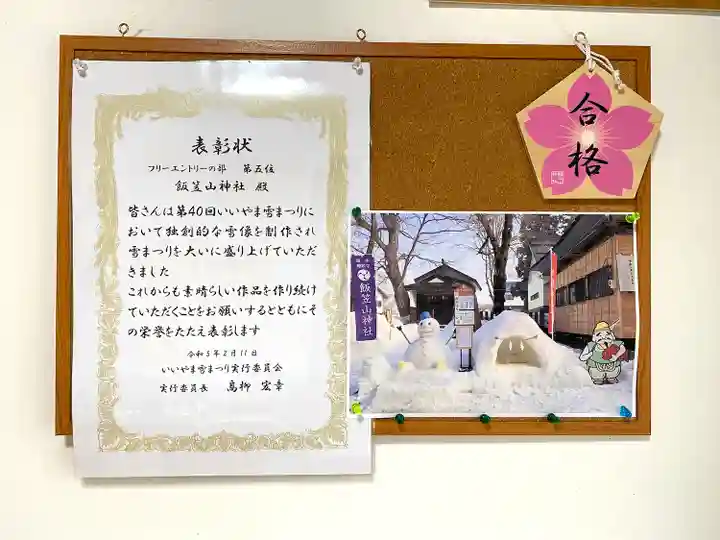 表彰状
フリーエントリーの部 第五位
飯笠山神社 殿
皆さんは第40回いいやま雪まつりに
おいて独創的な雪像を制作され
雪まつりを大いに盛り上げていただ
きました
これからも素晴らしい作品を作り続け
ていただくことをお願いするとともにそ
の栄誉をたたえ表彰します
令和5年2月11日
いいやま雪まつり実行委員会
実行委員長 高柳 宏幸
合格
飯笠山神社